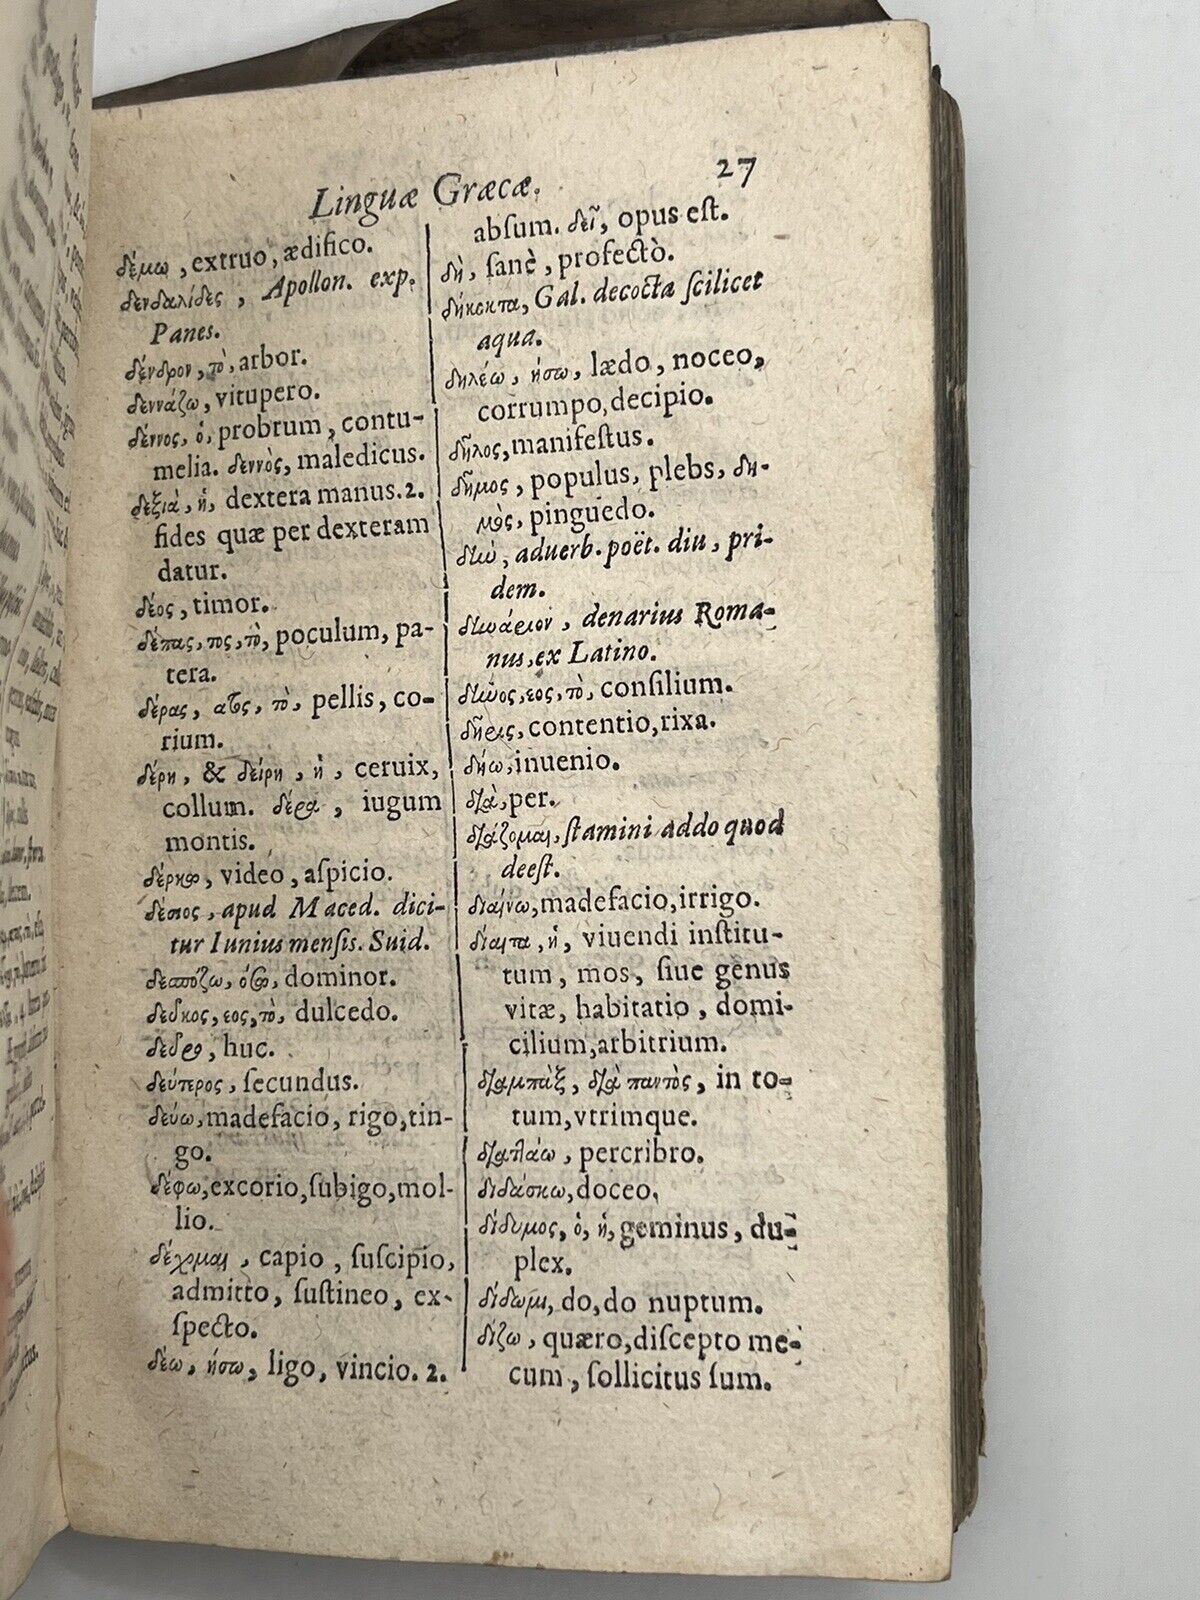 Linguæ Græcæ. 27
δέμω, extruo, ædifico.
δενδαλίδες, Apollon. exp.
Panes.
δένδρον, τὸ, arbor.
δεννάζω, vitupero.
δέννος, ὁ, probrum, contu-
melia. δεννὸς, maledicus.
δεξιὰ, ἡ, dextera manus. 2.
fides quæ per dexteram
datur.
δέος, timor.
δέπας, τος, τὸ, poculum, pa-
tera.
δέρας, ατος, τὸ, pellis, co-
rium.
δέρη, & δείρη, ἡ, ceruix,
collum. δέρα, iugum
montis.
δέρκω, video, aſpicio.
δέσιος, apud Maced. dici-
tur Iunius menſis. Suid.
δεσπόζω, όσω, dominor.
δεῦκος, εος, τὸ, dulcedo.
δεῦρο, huc.
δεύτερος, ſecundus.
δεύω, madefacio, rigo, tin-
go.
δέφω, excorio, ſubigo, mol-
lio.
δέχομαι, capio, ſuſcipio,
admitto, ſuſtineo, ex-
ſpecto.
δέω, ήσω, ligo, vincio. 2.
abſum. δεῖ, opus eſt.
δὴ, ſanè, profectò.
δήκοκτα, Gal. decocta ſcilicet
aqua.
δηλέω, ήσω, lædo, noceo,
corrumpo, decipio.
δῆλος, manifeſtus.
δῆμος, populus, plebs, δη-
μὸς, pinguedo.
δὴν, aduerb. poët. diu, pri-
dem.
δηνάριον, denarius Roma-
nus, ex Latino.
δῆνος, εος, τὸ, conſilium.
δῆρις, contentio, rixa.
δήω, inuenio.
διὰ, per.
διάζομαι, ſtamini addo quod
deeſt.
διαίνω, madefacio, irrigo.
δίαιτα, ἡ, viuendi inſtitu-
tum, mos, ſiue genus
vitæ, habitatio, domi-
cilium, arbitrium.
διαμπὰξ, διὰ παντὸς, in to-
tum, vtrimque.
διαττάω, percribro.
διδάσκω, doceo.
δίδυμος, ὁ, ἡ, geminus, du-
plex.
δίδωμι, do, do nuptum.
δίζω, quæro, diſcepto me-
cum, ſollicitus ſum.